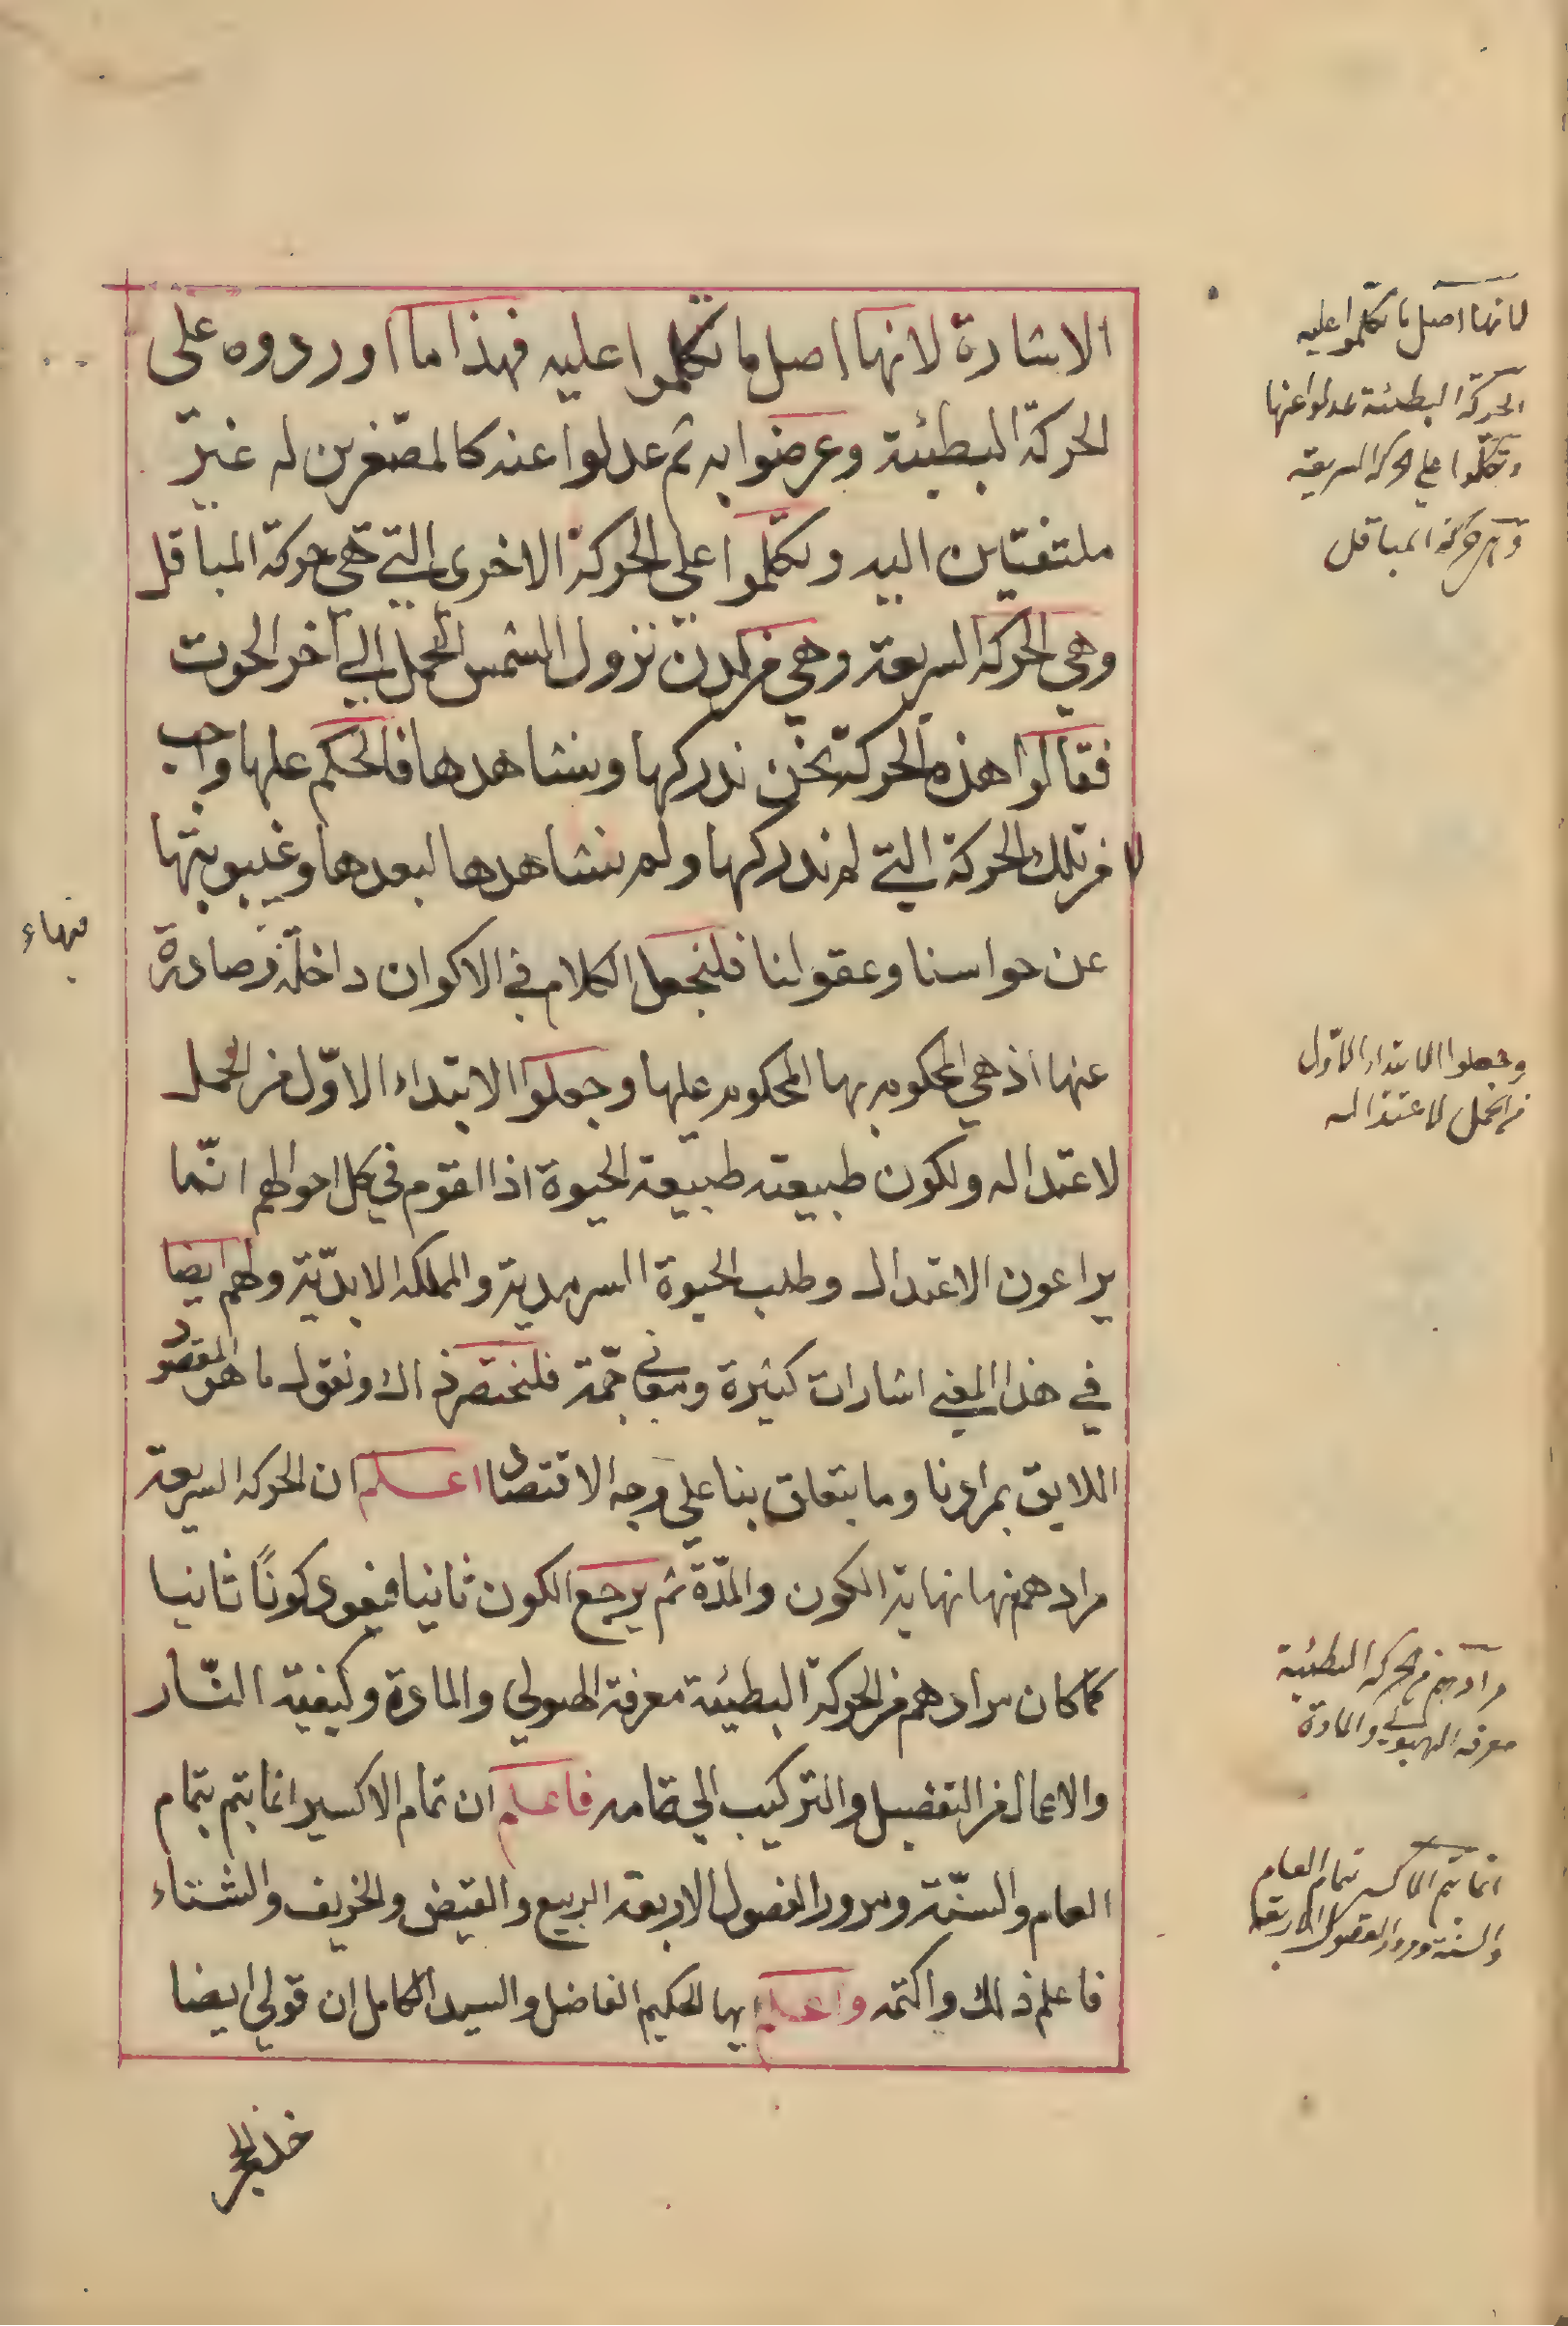 الاشارة لانها اصل ما تكلموا عليه فهذا ما اوردوه على
الحركة البطئية وعرضوا به ثم عدلوا عنه كالمصّغرين له غير
ملتفتين اليه وتكلّموا على الحركة الاخرى التي هي حركة المباقل
وهي الحركة السريعة وهي من لدن نزول الشمس الحمل الي آخر الحوت
فقالوا هذه الحركة نحن ندركها ونشاهدها فالحكم عليها واجب
لا من تلك الحركة التي لم ندركها ولم نشاهدها لبعدها وغيبوبتها
عن حواسنا وعقولنا فلنجعل الكلام في الاكوان داخلة وصادرة
عنها اذ هي المحكوم بها المحكوم عليها وجعلوا الابتداء الاوّل من الحمل
لاعتداله ولكون طبيعته طبيعة الحيوة اذ القوم في كل احوالهم انّما
يراعون الاعتدال وطلب الحيوة السرمدية والمملكة الابديّة ولهم ايضا
في هذا المعني اشارات كثيرة ومعاني جمّة فلنختصر ذالك ونقول ما هو المقصود
اللايق بمرادنا وما يتعلق بنا علي وجه الاقتصاد اعلم ان الحركة السريعة
مرادهم منها نهاية الكون والمدّة ثم يرجع الكون ثانيا فيعود كونًا ثانيا
كما كان مرادهم من الحركة البطيئة معرفة الهيولي والمادة وكيفية النّار
والاعمال من التفصيل والتركيب الي تمامه فاعلم ان تمام الاكسير انما يتم بتمام
العام والسنّة ومرور الفصول الاربعة الربيع والقيض والخريف والشتاء
فاعلم ذلك واكتمه واعلم ايها الحكيم الفاضل والسيد الكامل ان قولي ايضا
لانها اصل ما تكلّموا عليه
الحركة البطئة عدلوا عنها
وتكلّموا علي الحركة السريعة
وهي حركة المباقل
وجعلوا الابتداء الاوّل
من الحمل لاعتداله
مرادهم من الحركة البطئية
معرفة الهيولي والمادة
انما يتم الاكسير بتمام العام
والسنة ومرور الفصول الاربعة